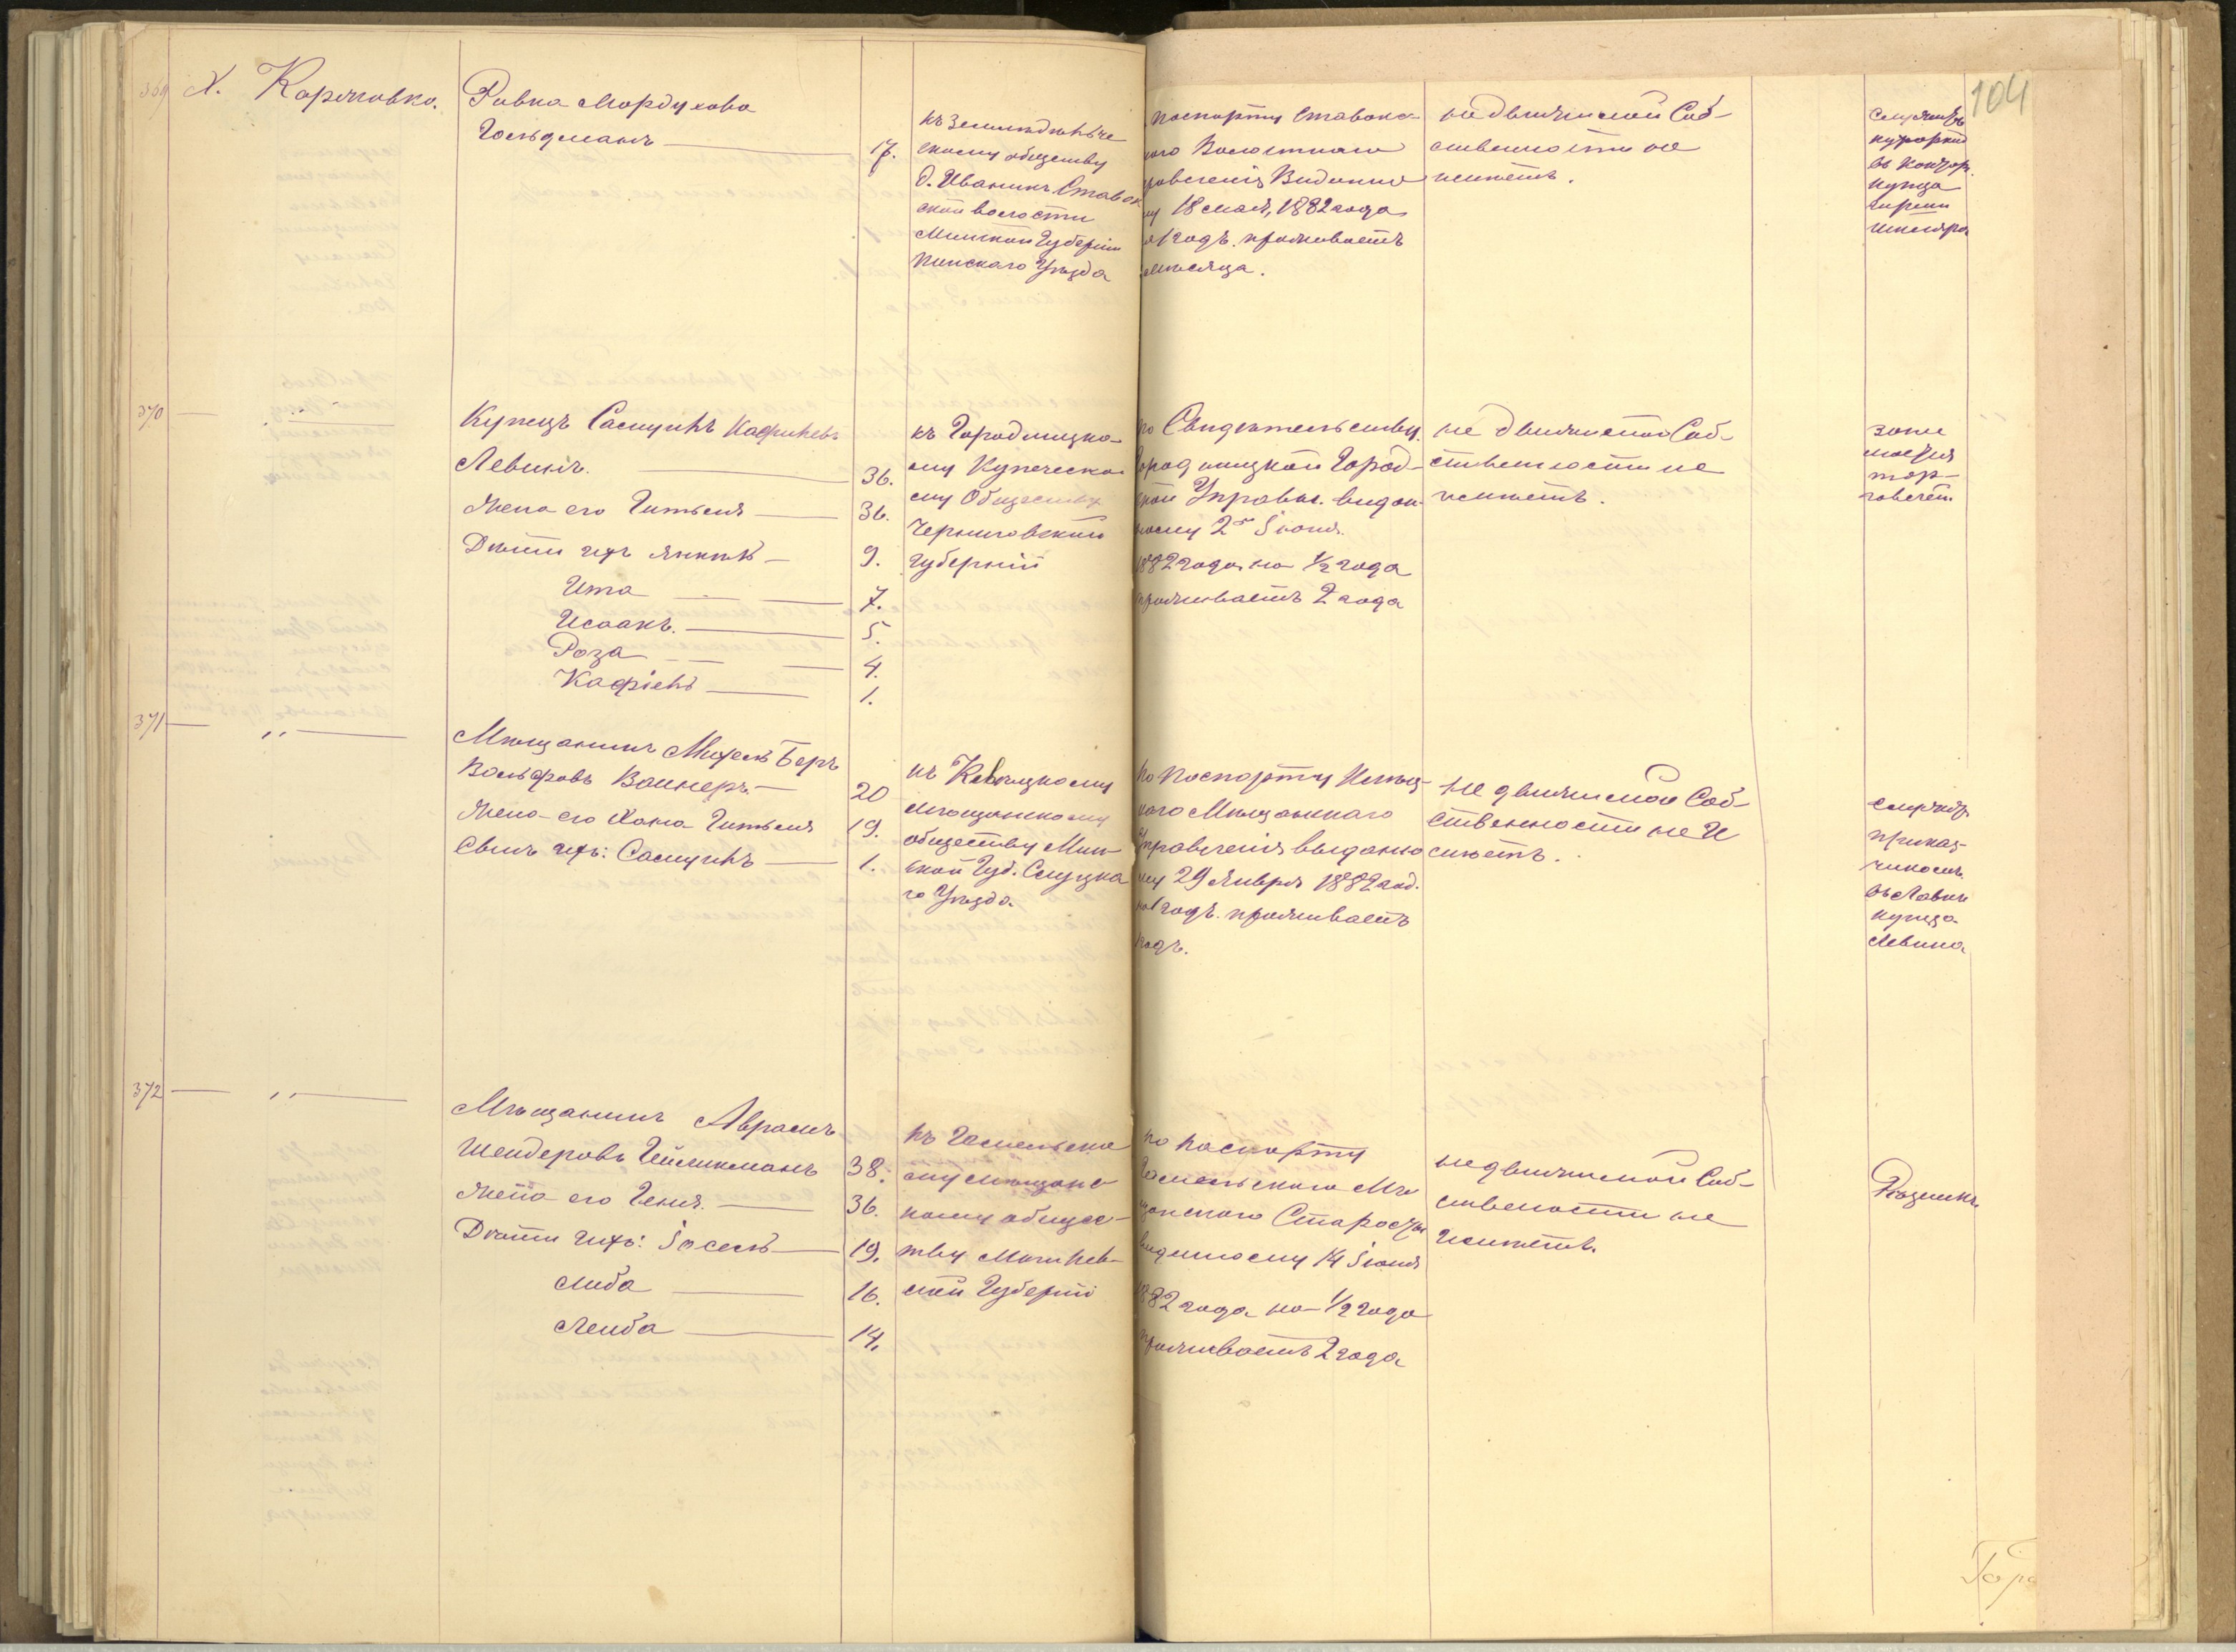 104
369 Х. Карповка.
Ривка Мордухова
Гольдманъ — 17.
къ Земледѣльче
скому обществу
д. Иваникъ Ставок
ской волости
Минской Губерніи
Пинскаго Уѣзда
паспорту Ставокс-
каго Волостнаго
правленія Виданно
му 18 мая, 1882 года
1 годъ. проживаетъ
мѣсяца.
недвижимой Соб-
ственности не
имѣетъ.
Служитъ
въ Контор.
купца
370 — „ —
Купецъ Самуилъ
Левинъ. — 36.
Жена его Гитьля — 36.
Дѣти ихъ — 9.
Ита — 7.
Исаакъ. — 5.
Роза — 4.
— 1.
къ Городницко-
му Купеческо
му Обществу
Черниговской
губерній
по Свидѣтельству
Городницкой Город-
ской Управы. видан-
ному 2го Іюня
1882 года на 1/2 года
проживаетъ 2 года
не движимой Соб-
ственности не
имѣетъ.
зани
мается
тор-
говлей
371 — „ —
Мѣщанинъ Михель Беръ
Вольфовъ Винеръ. — 20
Жена его Хана Гитьля 19.
Сынъ ихъ: Самуилъ — 1.
къ
мѣщанскому
обществу Мин-
ской Губ. Слуцка
го Уѣзда.
по паспорту
каго Мѣщанскаго
Управленія выданно
му 29 Января 1882 год.
на 1 годъ. проживаетъ
годъ.
не движимой Соб-
ственности не и
мѣетъ.
служитъ
приказ-
чикомъ
въ Лавки
купца
Левина
372 — „ —
Мѣщанинъ Абрамъ
Шендеровъ Цейликманъ 38.
Жена его Геня. — 36.
Дѣти ихъ: Іосель — 19.
Либа — 16.
Лейба — 14.
къ Гомельско
му мѣщанс
кому общес-
тву Могилев-
ской Губерній
по паспорту
Гомельского Мѣ
щанского Старосты
виданному 14 Іюня
1882 года на 1/2 года
проживаетъ 2 года
недвижимой Соб-
ственности не
имѣетъ.
Рѣзникъ